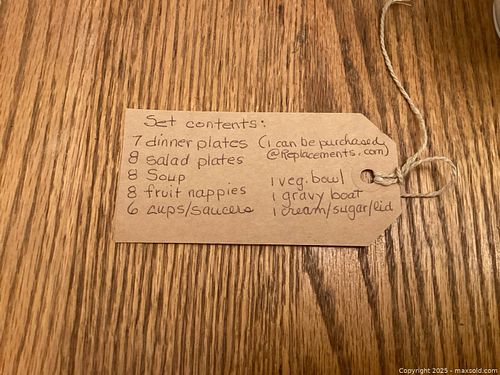 Set contents:
7 dinner plates (1 can be purchased
@Replacements.com)
8 salad plates
8 Soup
8 fruit nappies
6 cups/saucers
1 veg. bowl
1 gravy boat
1 cream/sugar/lid
Copyright 2025 - maxsold.com